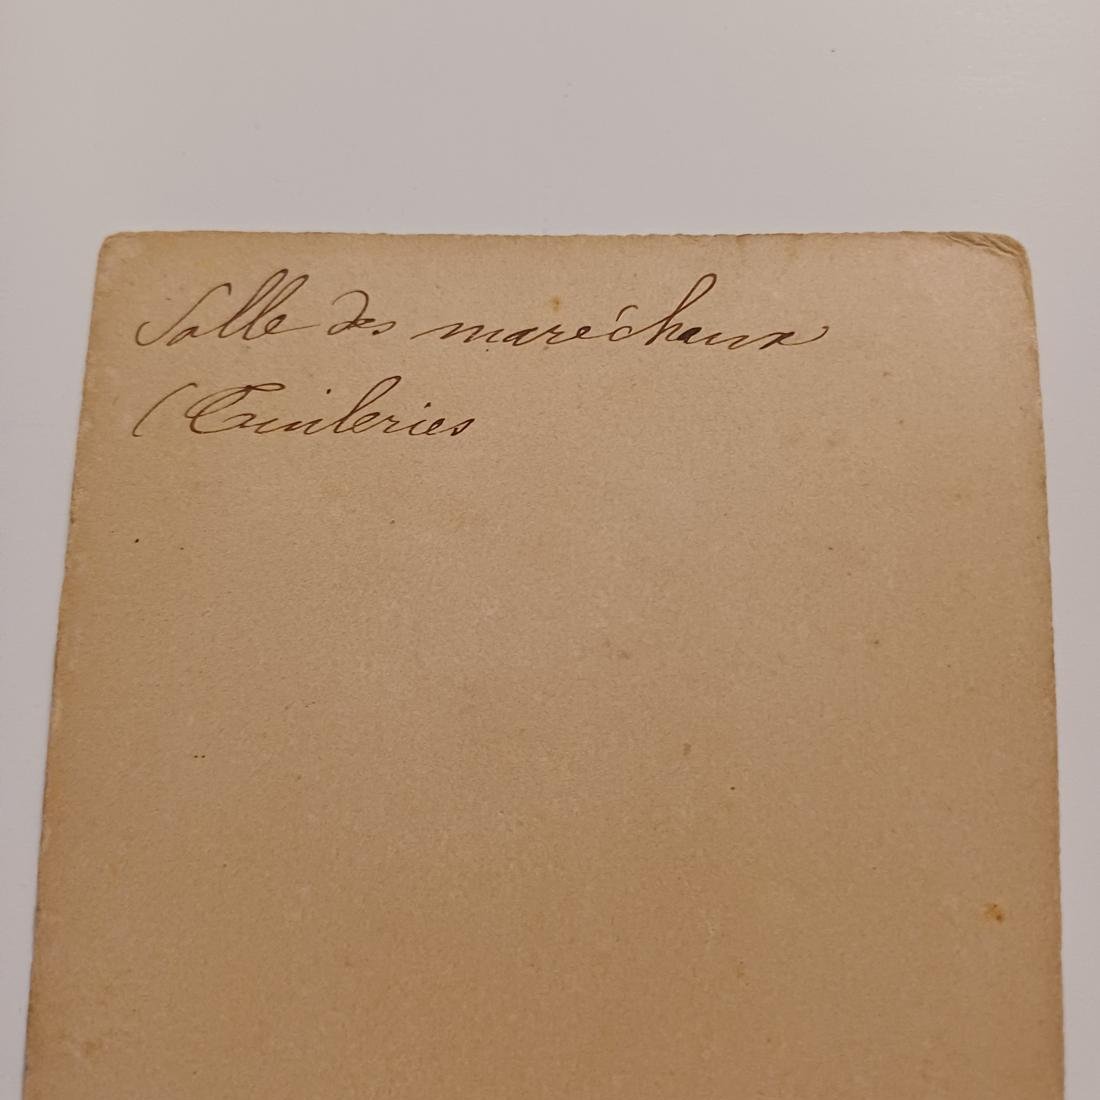 Salle des maréchaux
(Tuileries